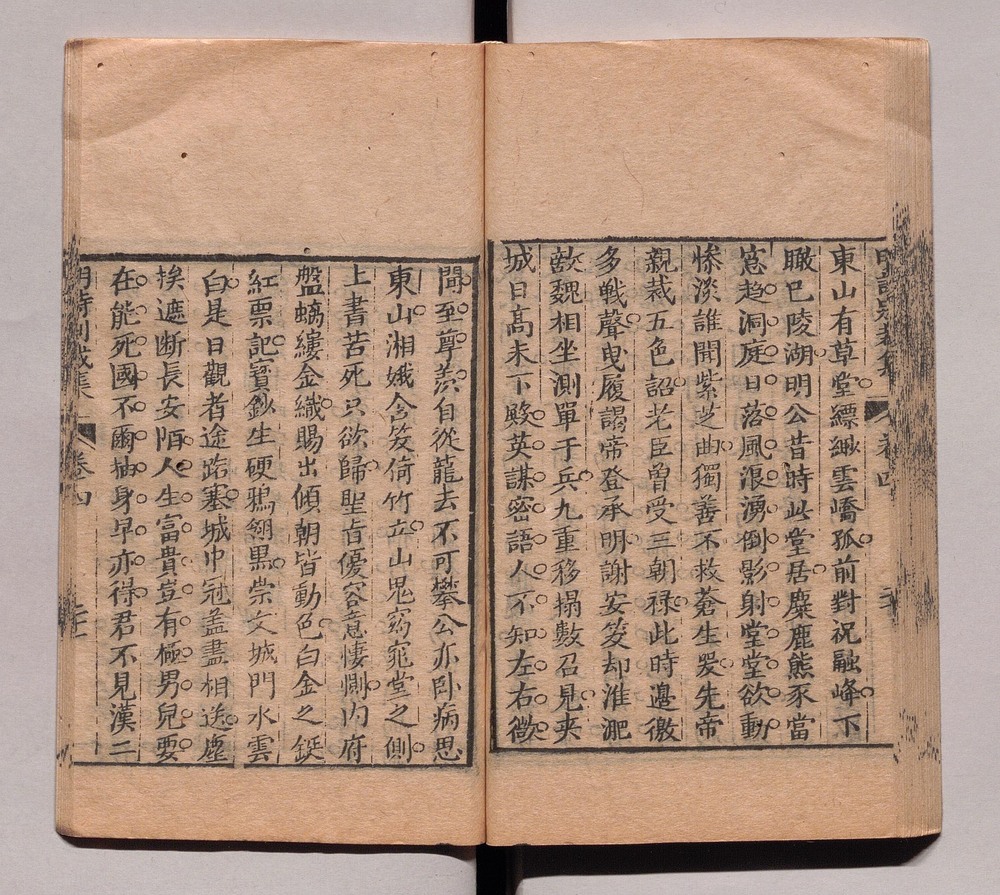 東山有草堂縹緲雲嶠孤前對祝融峰下
瞰巴陵湖明公昔時此堂居麋鹿熊豕當
窓趋洞庭日落風浪湧倒影射堂堂欲動
惨淡誰聞紫芝曲獨善不救蒼生哭先帝
親裁五色詔老臣曾受三朝禄此時邉徼
多戦聲曳履謁帝登承明謝安笑却淮淝
敵魏相坐測單于兵九重移搨數召見夹
城日高未下殿英謀密語人不知左右微
聞至尊羨自從龍去不可攀公亦卧病思
東山湘娥含笑倚竹立山鬼窈窕堂之側
上書苦死只欲歸聖㫖優容意悽惻内府
盤螭縷金織賜出傾朝皆動色白金之鋌
紅票記寳鈔生硬鴉翎黒崇文城門水雲
白是日觀者途路塞城中冠盖盡相送塵
挨遮断長安陌人生富貴豈有極男兒要
在能死國不爾抽身早亦得君不見漢二
明詩别裁集 卷四